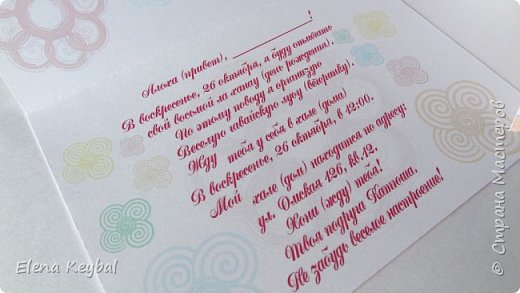 Алоха (привет), ____________!
В воскресенье, 26 октября, я буду отмечать
свой восьмой ла ханау (день рождения).
По этому поводу я организую
Веселую гавайскую мусу (вечеринку).
Жду тебя у себя в хале (дома)
В воскресенье, 26 октября, в 12:00.
Мой хале (дом) находится по адресу:
ул. Омская 126, кв.12.
Хони (жду) тебя!
Твоя подруга Катюша.
Не забудь веселое настроение!
Elena Keybal
© Страна Мастеров